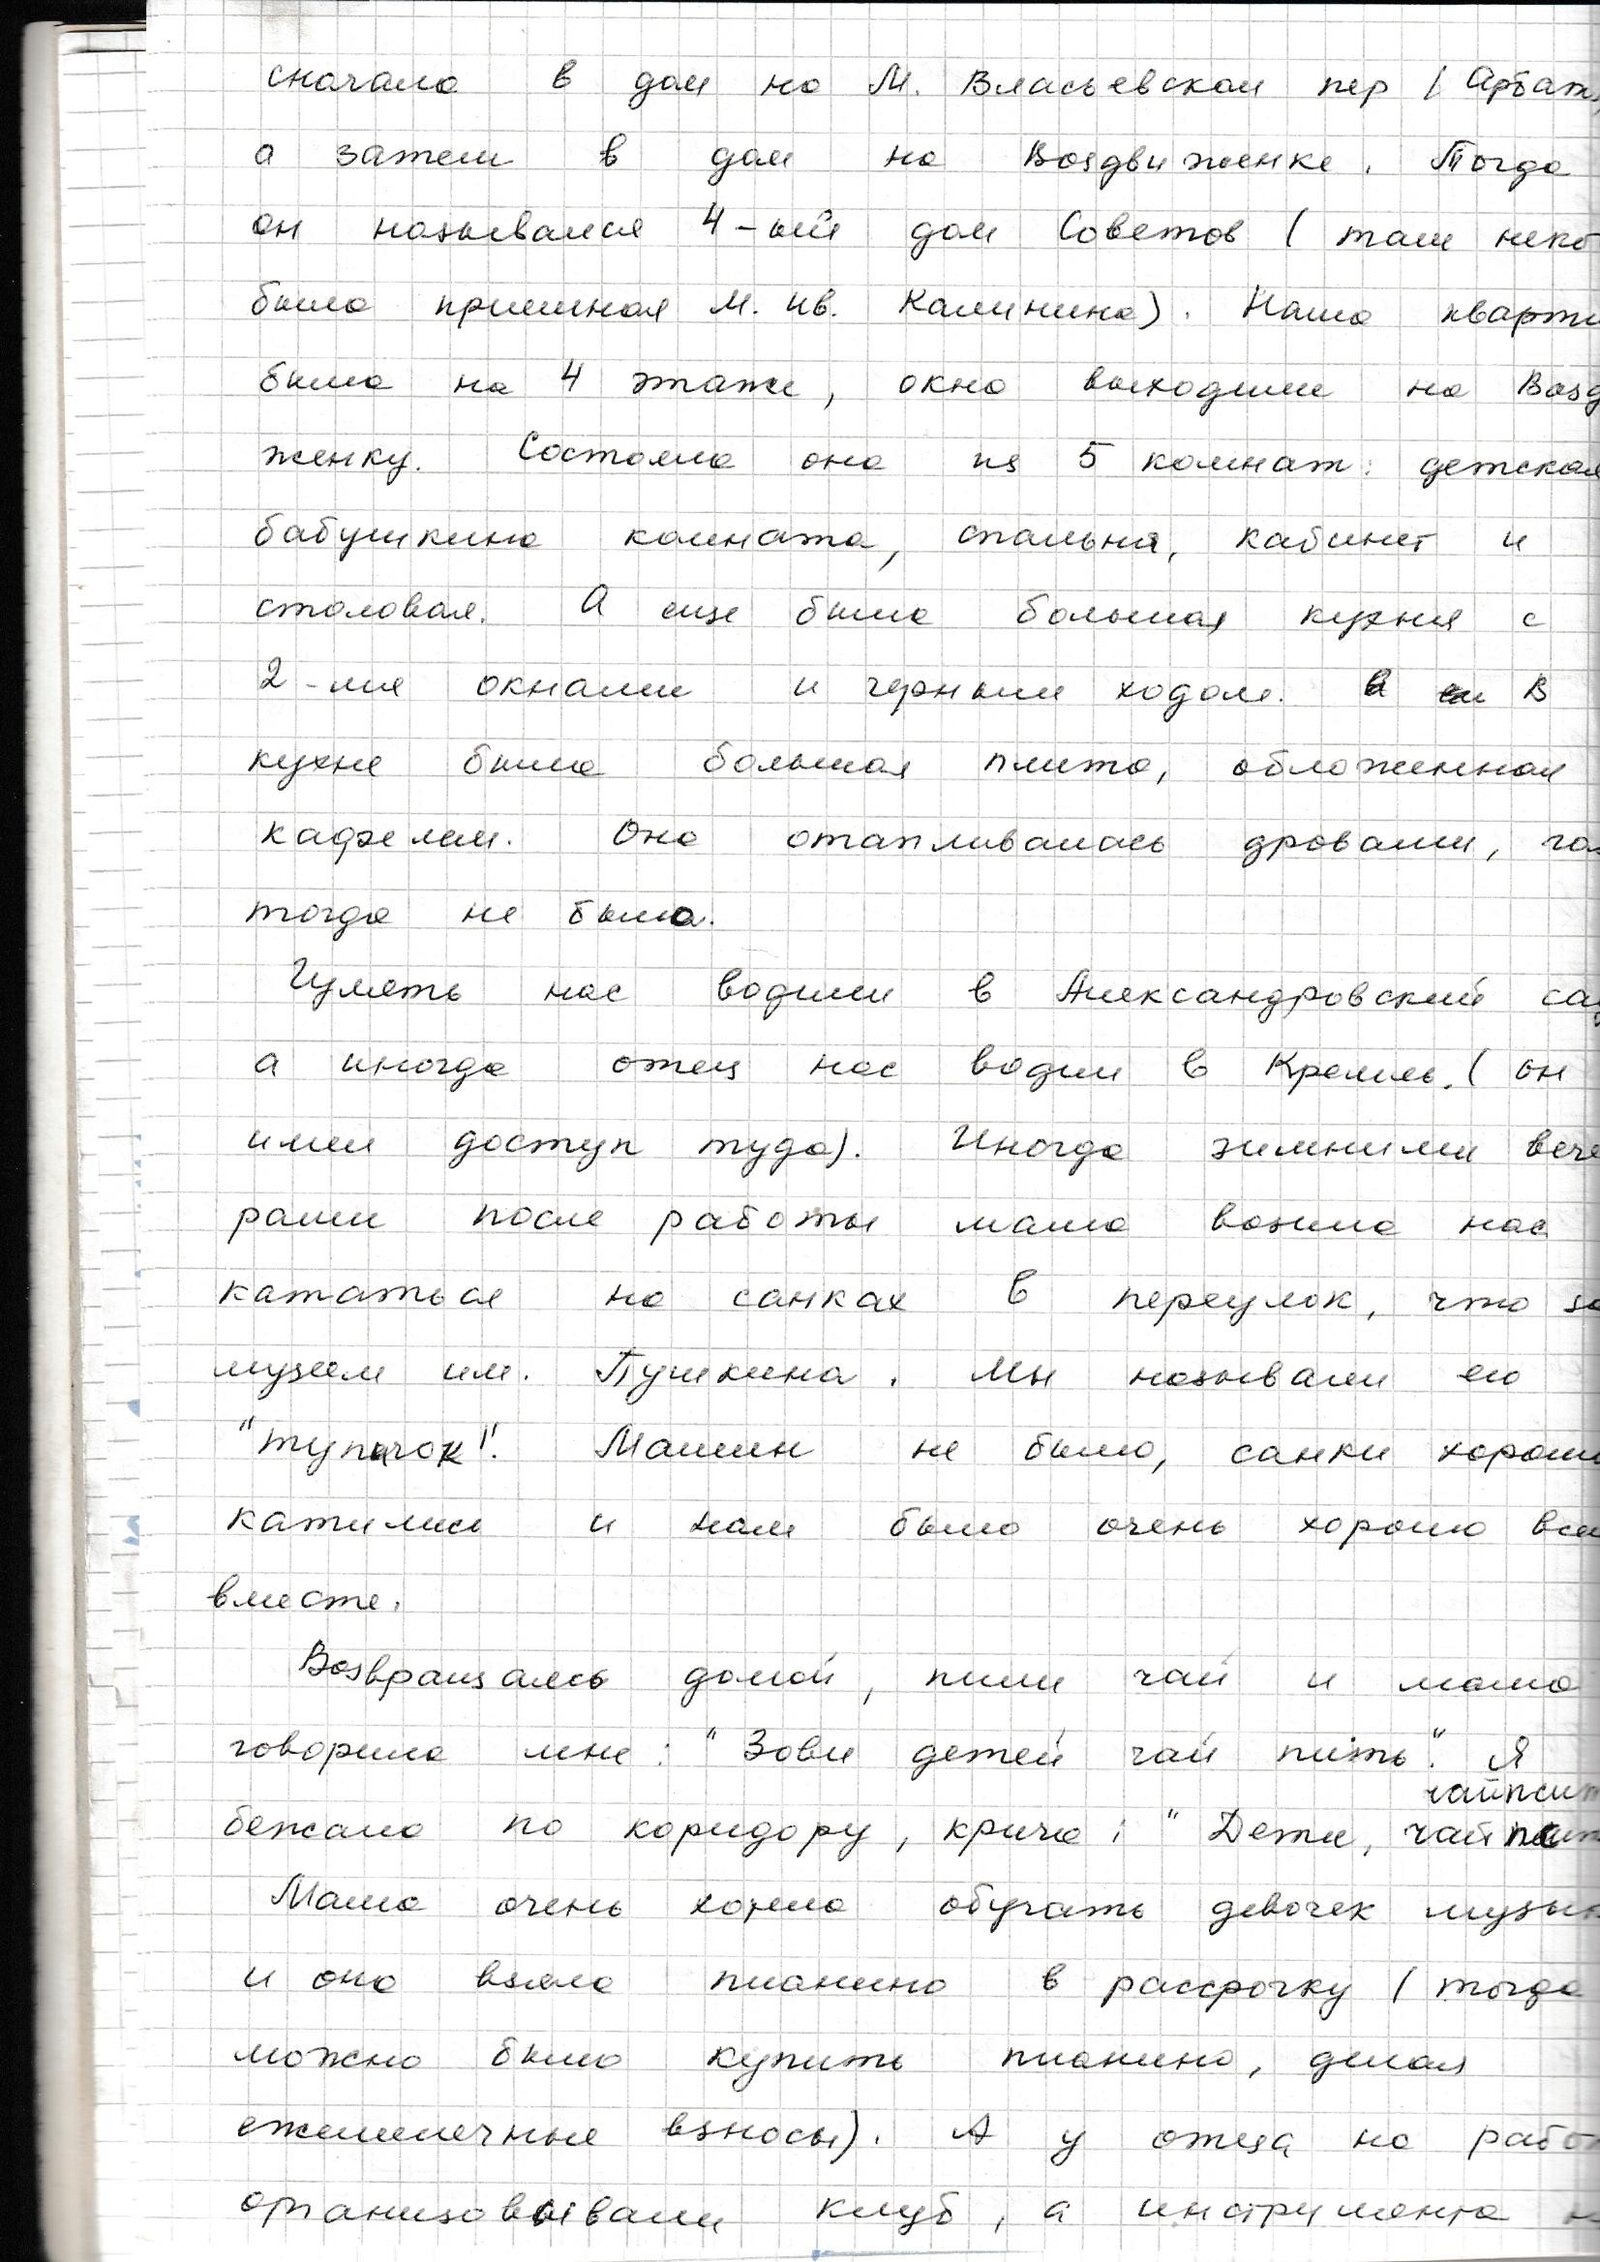 сначала в дом на М. Власьевском пер (Арбат,
а затем в дом на Воздвиженке. Тогда
он назывался 4-ый дом Советов (там
была приемная М. Ив. Калинина). Наша кварти
была на 4 этаже, окна выходили на Возд
женку. Состояла она из 5 комнат: детская
бабушкина комната, спальня, кабинет и
столовая. А еще была большая кухня с
2-мя окнами и черным ходом. В
кухне была большая плита, обложенная
кафелем. Она отапливалась дровами, газ
тогда не было.
Гулять нас водили в Александровский сад
а иногда отец нас водил в Кремль. (он
имел доступ туда). Иногда зимними вече
рами после работы мама возила нас
кататься на санках в переулок, что за
музеем им. Пушкина. Мы называли его
"тупичок". Машин не было, санки хорошо
катились и нам было очень хорошо всем
вместе.
Возвращались домой, пили чай и мама
говорила мне: "Зови детей чай пить". Я
чайпит
бежала по коридору, крича: "Дети,
Мама очень хотела обучать девочек музык
и она взяла пианино в рассрочку (тогда
можно было купить пианино, делая
ежемесячные взносы). А у отца на рабо
организовывали клуб, а инструмента